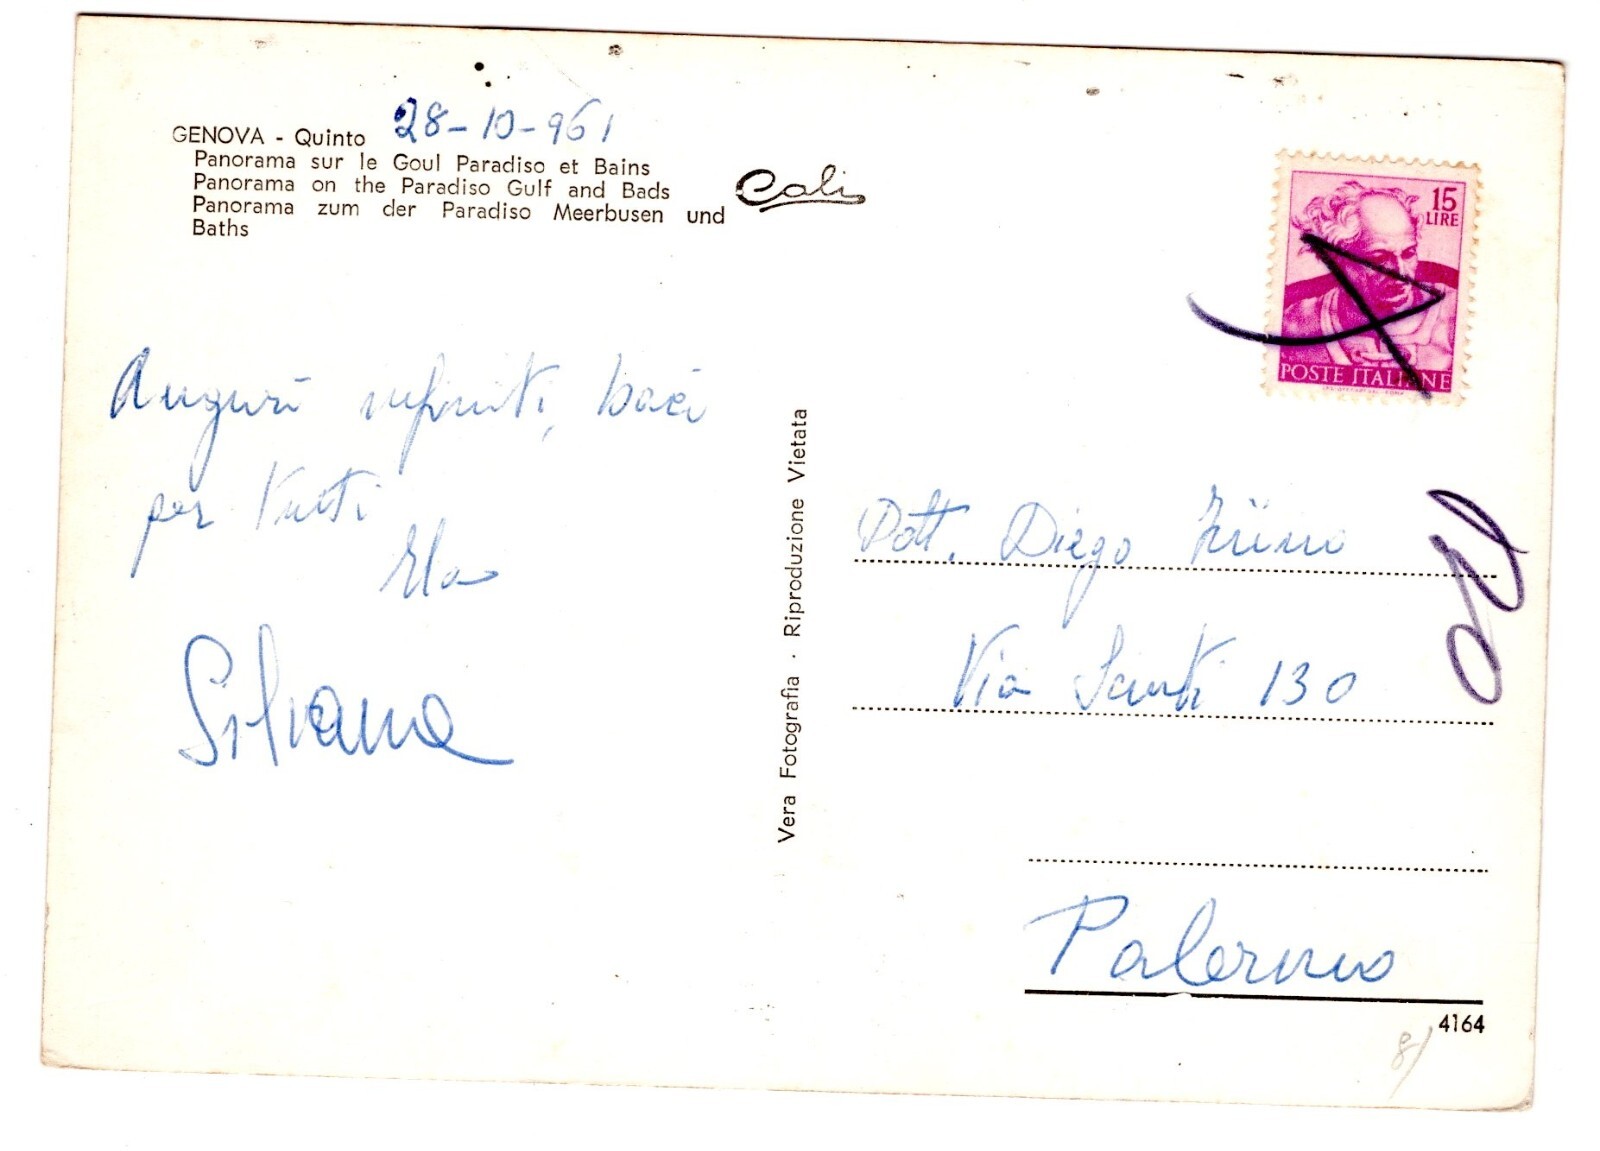 GENOVA - Quinto 28-10-961
Panorama sur le Goul Paradiso et Bains
Panorama on the Paradiso Gulf and Bads
Panorama zum der Paradiso Meerbusen und
Baths
Cali
15
LIRE
POSTE ITALIANE
Auguri infiniti, baci
per tutti
Ela
Silvana
Vera Fotografia · Riproduzione Vietata
Dott. Diego
Via Santi 130
Palermo
4164
8/